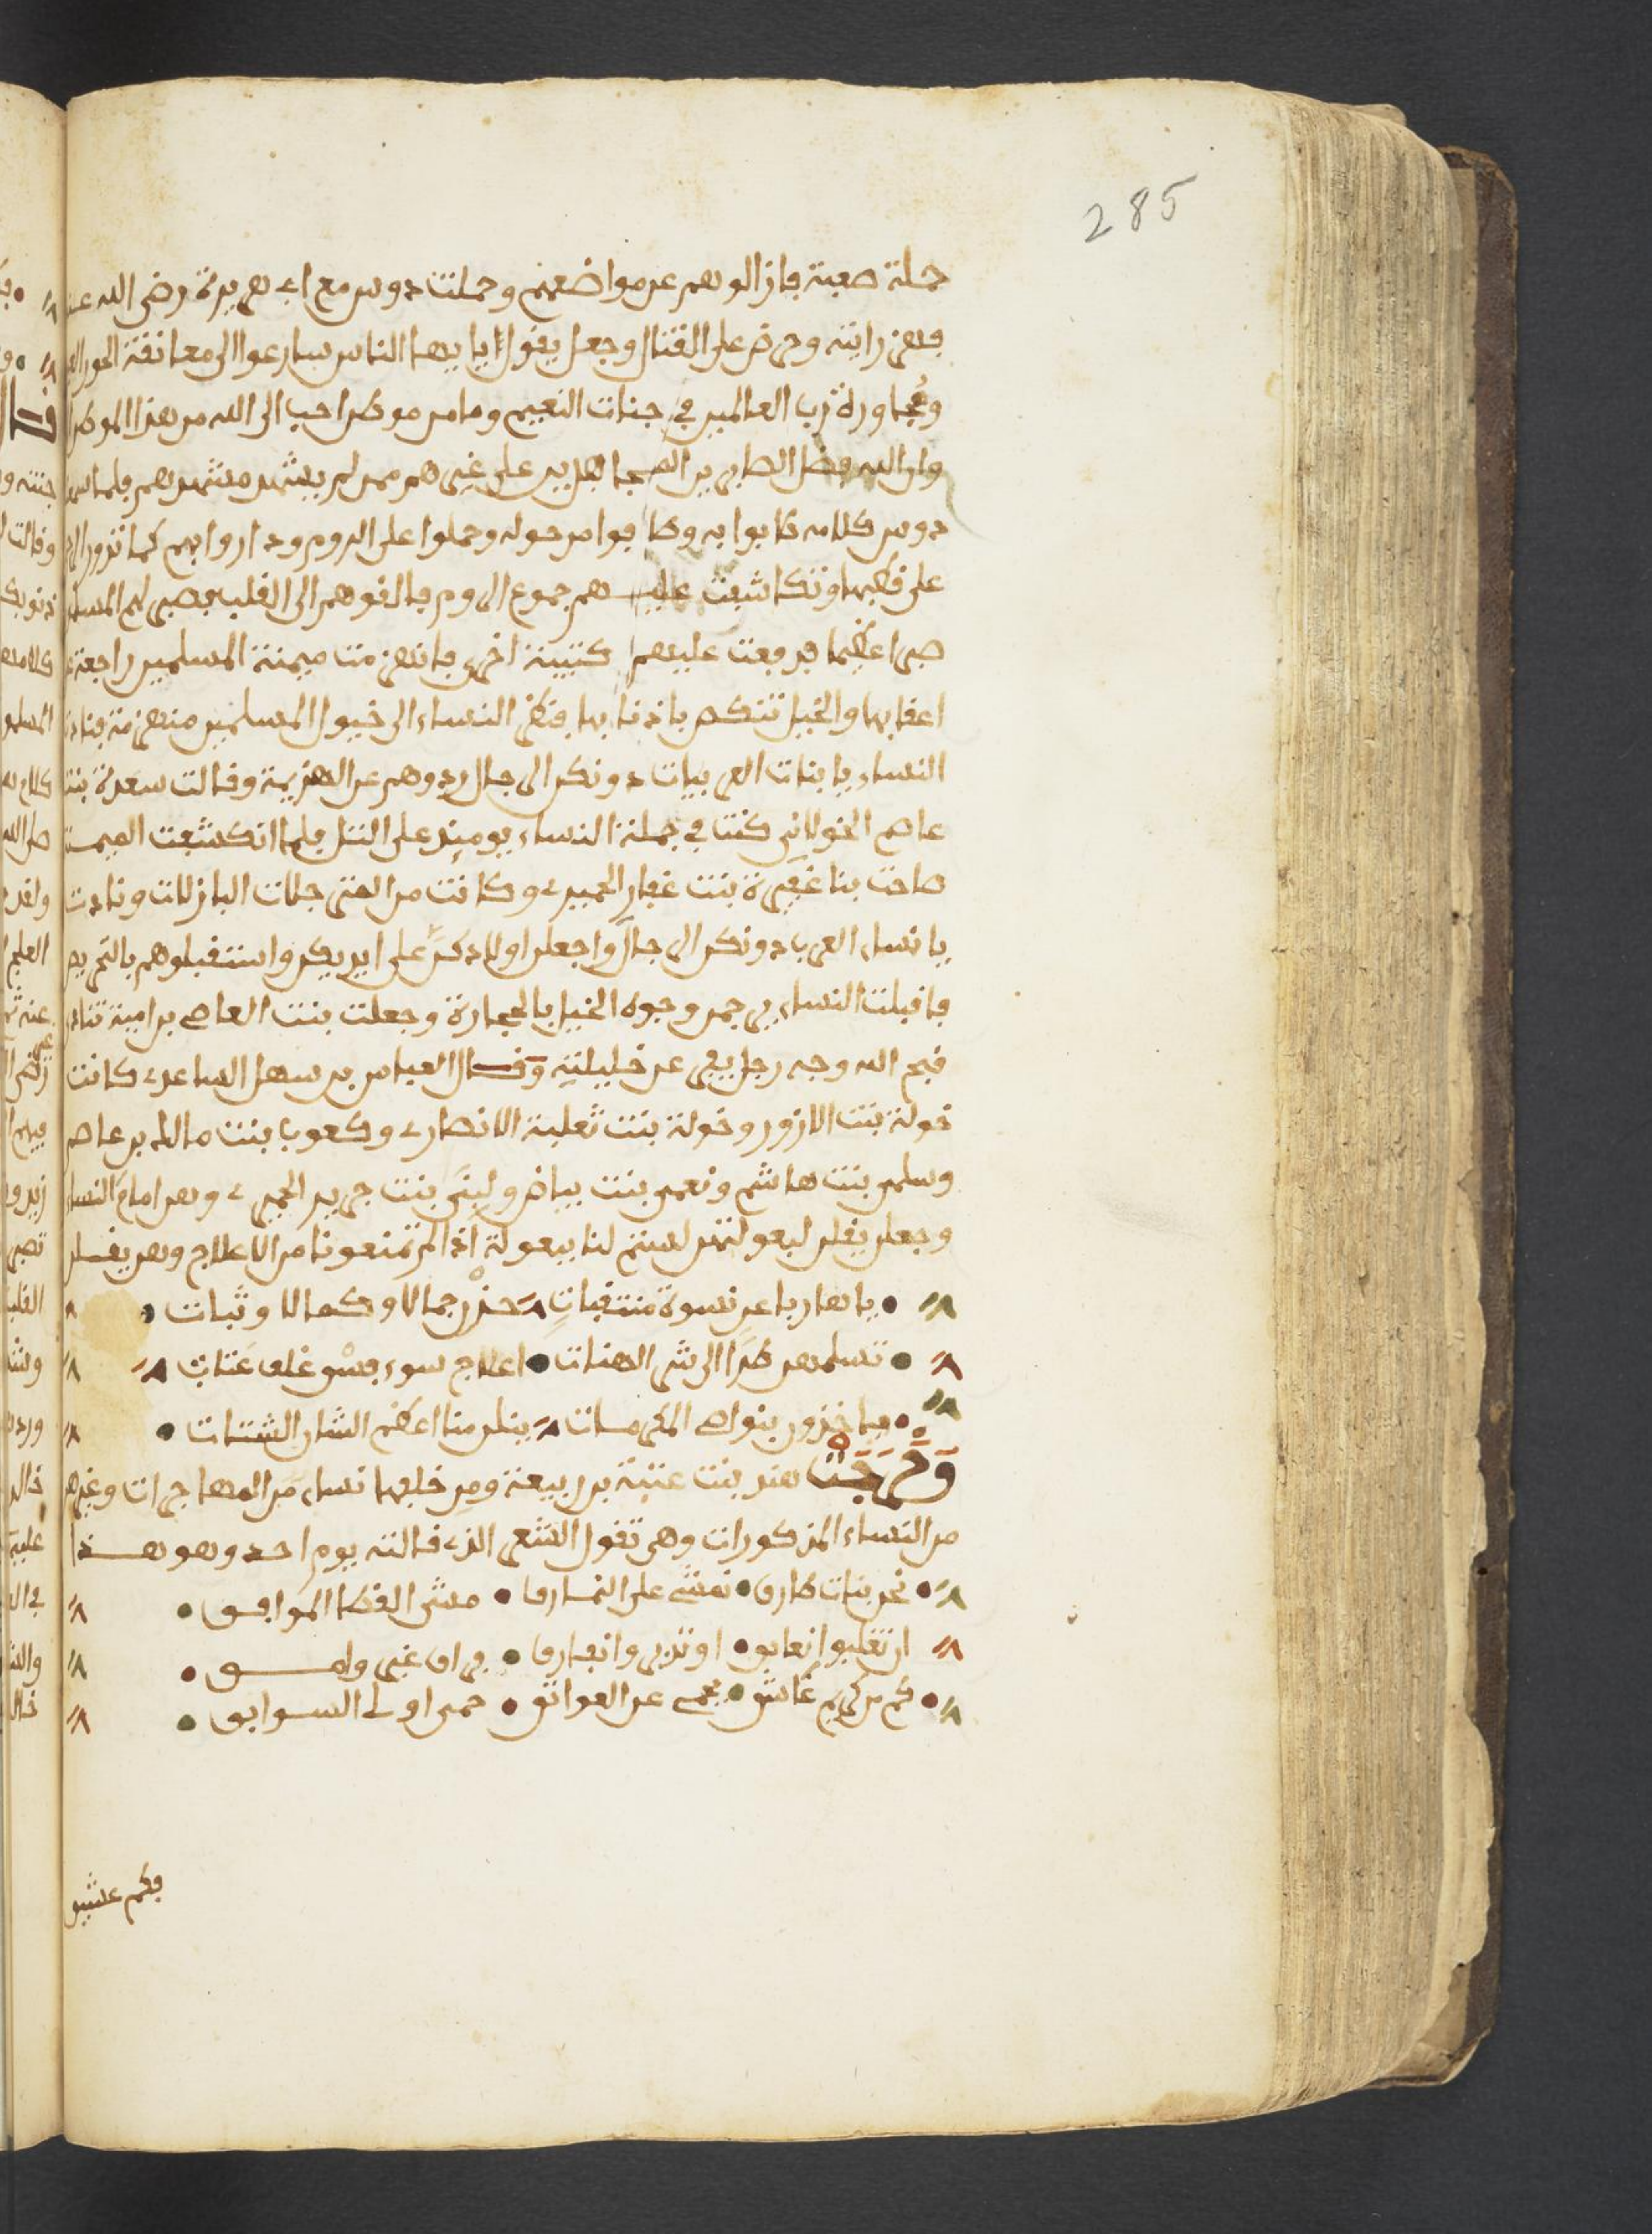 285
حملة صعبة فازالوهم عن مواضعهم وحملت دوس مع ابي هريرة رضي الله عنه
فهز رايته وحرض على القتال وجعل يقول يا يها الناس سارعوا الى معانقة الحور العين
ومجاورة رب العالمين في جنات النعيم وما من موطن احب الى الله من هذا الموطن
وان الله فضل الصابرين المجاهدين على غيرهم ممن لم يشهد مشهدهم فلما سمعت
دوس كلامه طابوا به وطافوا من حوله وحملوا على الروم وداروا بهم كما تدور الرحى
على قطبها وتكاشفت عليهم جموع الروم فالفوهم الى القلب فصبر لهم المسلمون
صبرا عظيما فدفعت عليهم كتيبة اخرى فانهزمت ميمنة المسلمين راجعة على
اعقابها والخيل تنكص باذنابها فنظر النساء الى خيول المسلمين منهزمة فنادت
النساء يا بنات العربيات دونكن الرجال ردوهم عن الهزيمة وقالت سعدة بنت
عاصم الخولاني كنت في جملة النساء يومئذ على التل فلما انكشفت الميمنة
صاحت بنا عفيرة بنت غفار الحميري وكانت من المترجلات البازلات ونادت
يا نساء العرب دونكن الرجال واجعلن اولادكن على ايديكن واستقبلوهم بالتحريض
فاقبلت النساء يرجمن وجوه الخيل بالحجارة وجعلت بنت العاصي بن امية تنادي
قبح الله وجه رجل يفر عن خليلته وقال العباس بن سهل الساعدي كانت
خولة بنت الازور وخولة بنت ثعلبة الانصاري وكعوب بنت مالك بن عاصم
وسلمى بنت هاشم ونعمى بنت بياض ولبنى بنت جرير الحميري وهن امام النساء
وجعلن يقلن لبعولتهن لستم لنا ببعولة اذا لم تمنعونا من الاعلاج وهن يقلن
يا هاربا عن نسوة منتقبات حزن جمالا وكمالا وثبات
تسلمهن طرا الى شر الهنات اعلاج سوء فسق غلف عتات
فياخذون بنواصي المكرمات ينلن منا اعظم الشان الشتات
وخرجت هند بنت عتبة بن ربيعة ومن خلفها نساء من المهاجرات وغيرهم
من النساء المذكورات وهي تقول الشعر الذي قالته يوم احد وهو هذا
نحن بنات طارق نمشي على النمارق مشي القطا الموافق
ان تغلبوا نعانق او تدبروا نفارق فراق غير وامق
كم من كريم عاشق يحمي عن العواتق حمى اولي السوابق
فكم عشيق